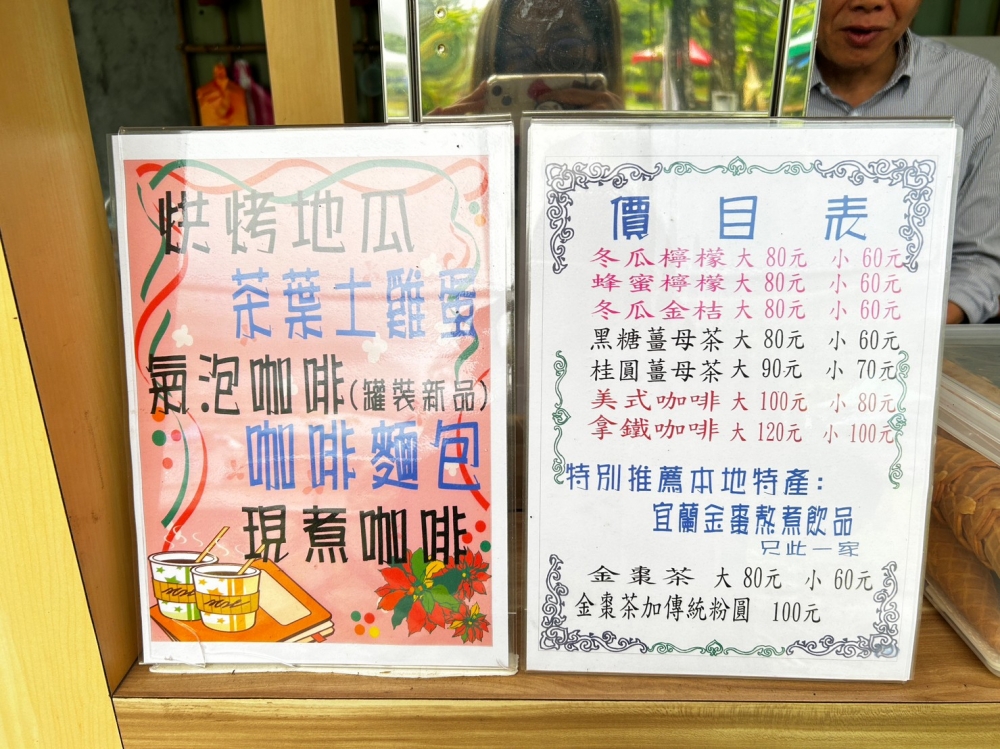 烘烤地瓜
茶葉土雞蛋
氣泡咖啡(罐裝新品)
咖啡麵包
現煮咖啡
價目表
冬瓜檸檬 大 80元 小 60元
蜂蜜檸檬 大 80元 小 60元
冬瓜金桔 大 80元 小 60元
黑糖薑母茶 大 80元 小 60元
桂圓薑母茶 大 90元 小 70元
美式咖啡 大 100元 小 80元
拿鐵咖啡 大 120元 小 100元
特別推薦本地特產:
宜蘭金棗熬煮飲品
只此一家
金棗茶 大 80元 小 60元
金棗茶加傳統粉圓 100元